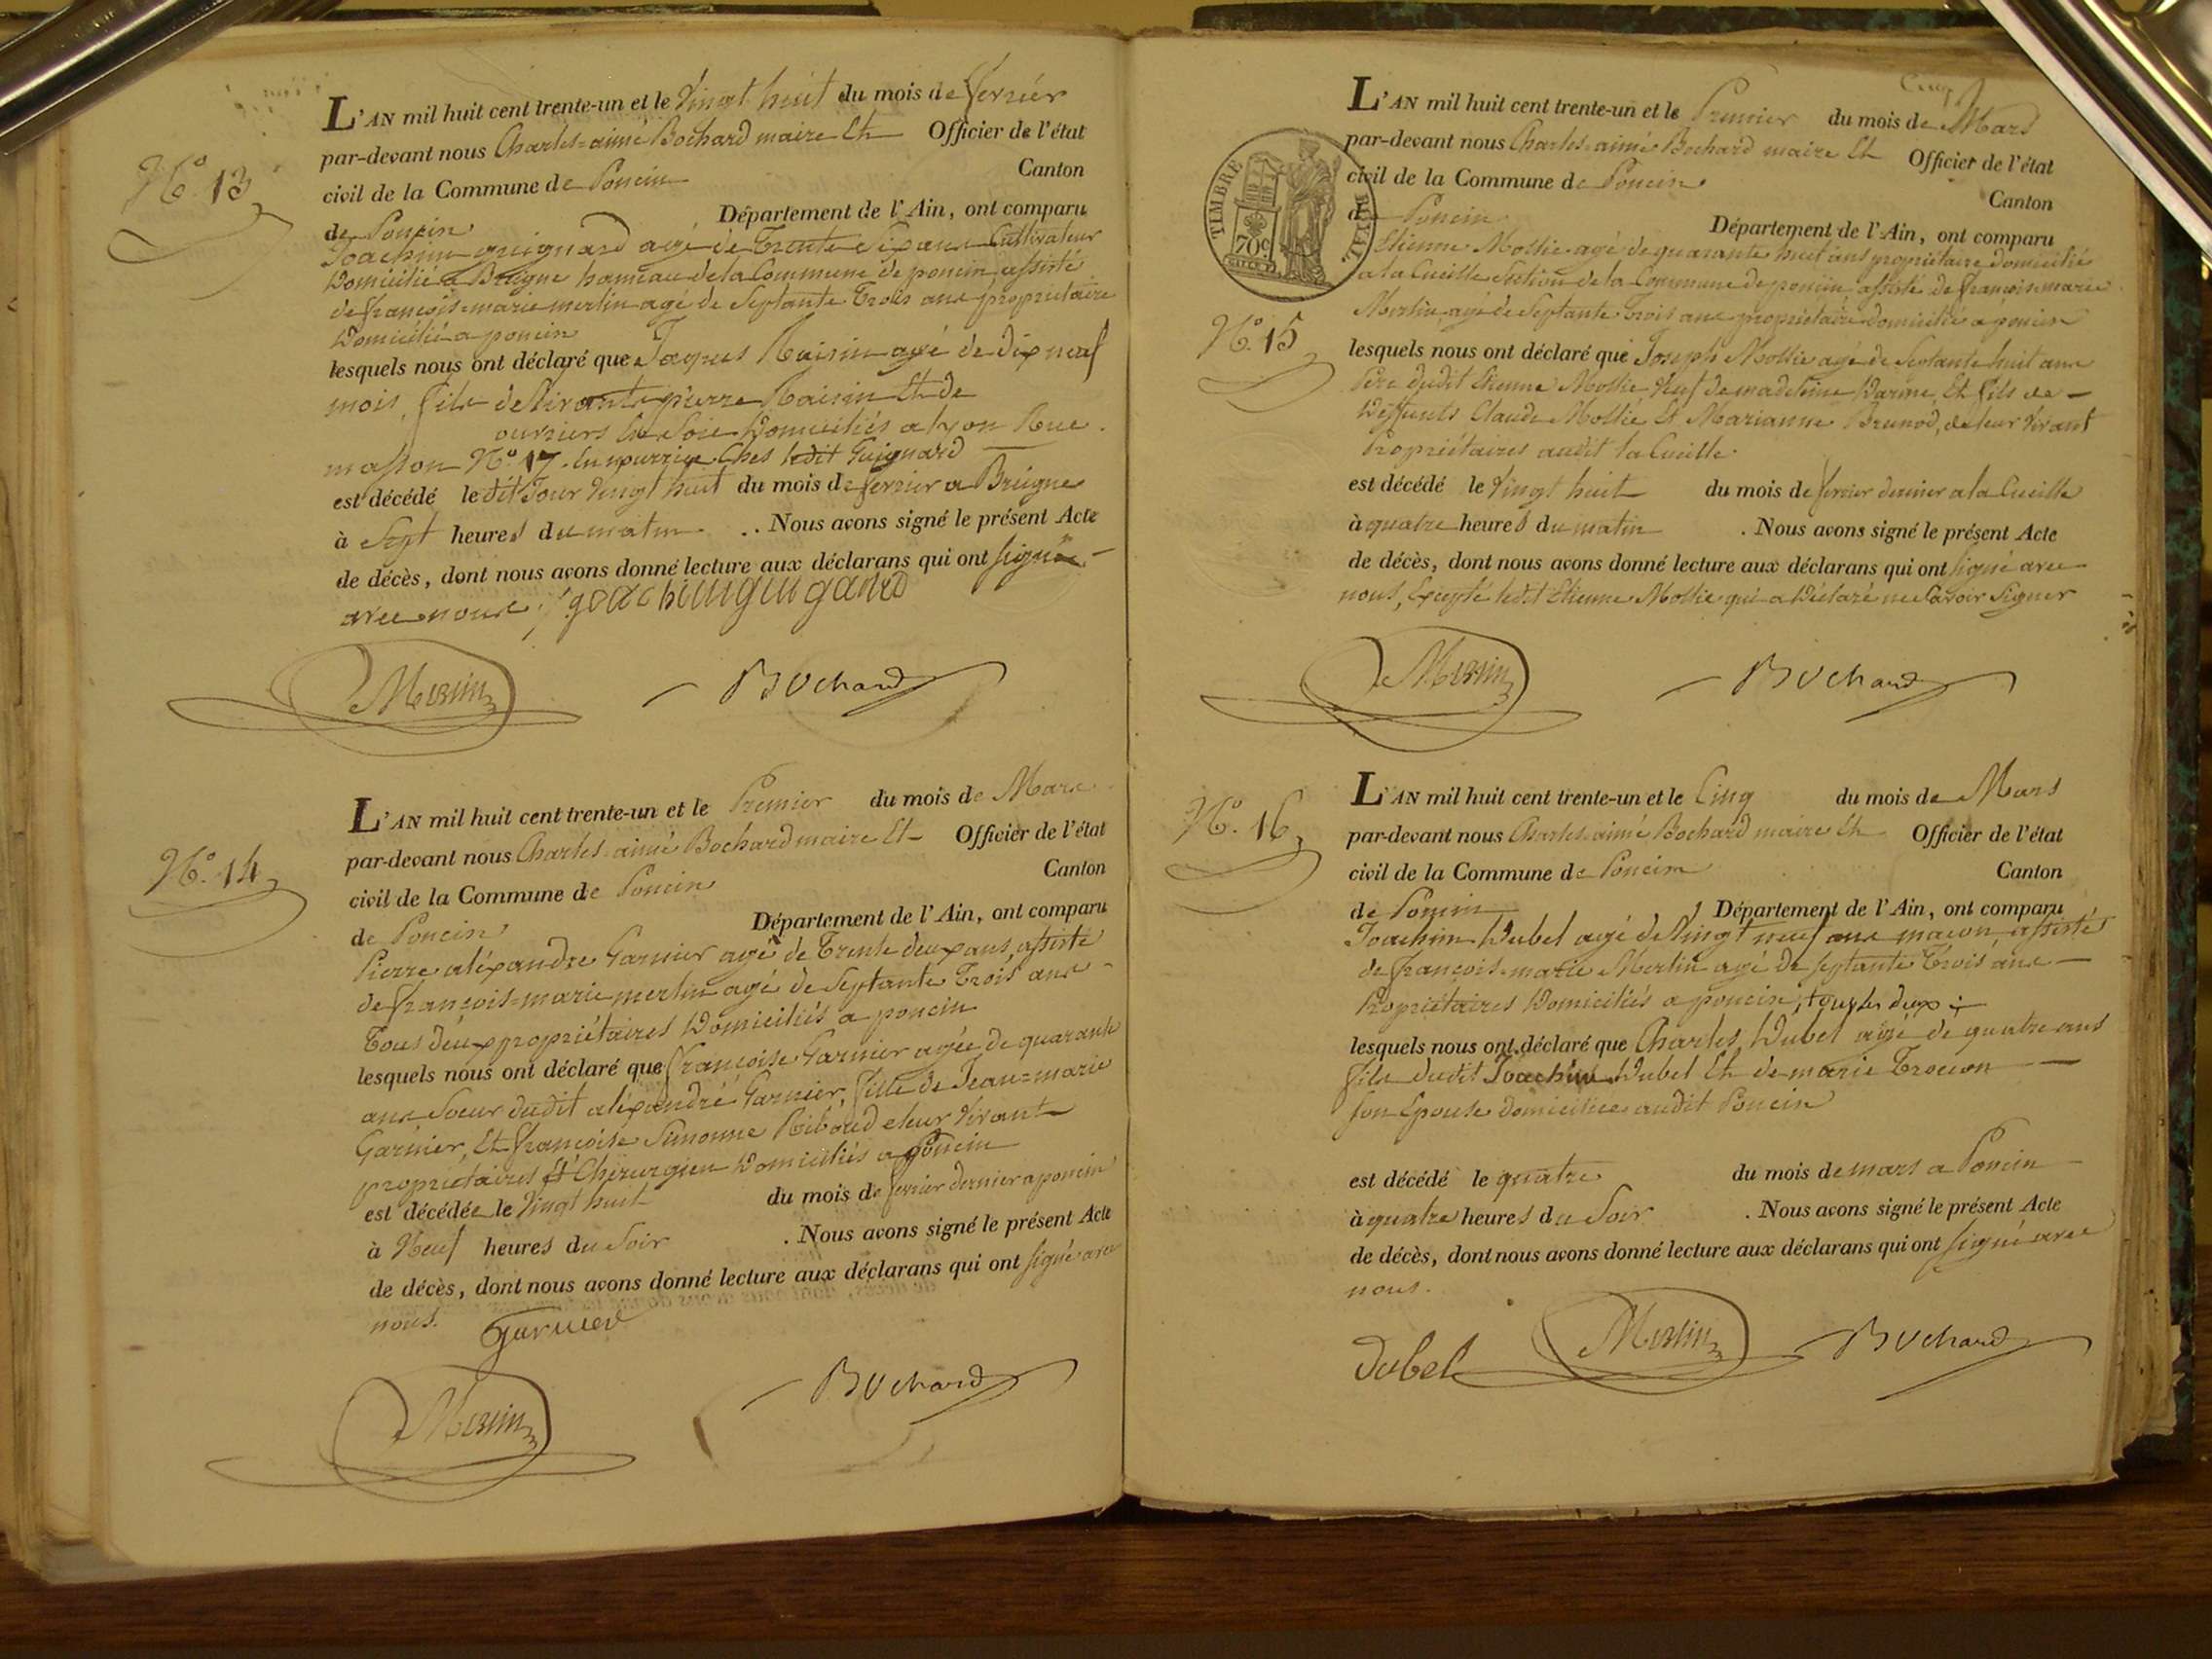 N.º 13
L'AN mil huit cent trente-un et le vingt huit du mois de fevrier
par-devant nous Charles=aimé Bochard maire Et Officier de l'état
civil de la Commune de Poncin Canton
de Poncin Département de l'Ain, ont comparu
Joachim guignard agé de Trente Six ans Cultivateur
Domicilié a Breigne hameau de la Commune de poncin, assisté
de françois=marie merlin agé de Septante Trois ans propriétaire
Domicilié a poncin
lesquels nous ont déclaré que Jaques Raisin agé de dix neuf
mois, fils de Vivants pierre Raisin Et de
ouvriers En Soie Domiciliés a Lyon Rue
masson N.º 17. En nourrice Ches ledit Guignard
est décédé le dit Jour vingt huit du mois de fevrier a Breigne
à Sept heures du matin . Nous avons signé le présent Acte
de décès, dont nous avons donné lecture aux déclarans qui ont signé
avec nous
Merlin
Bochard
N.º 14
L'AN mil huit cent trente-un et le Premier du mois de Mars
par-devant nous Charles-aimé Bochard maire Et Officier de l'état
civil de la Commune de Poncin Canton
de Poncin Département de l'Ain, ont comparu
Pierre aléxandre Garnier agé de Trente deux ans, assisté
de françois=marie merlin agé de Septante Trois ans
Tous deux propriétaires Domiciliés a poncin
lesquels nous ont déclaré que françoise Garnier agée de quarante
ans Soeur dudit aléxandre Garnier, fille de Jean=marie
Garnier, Et françoise Simonne Riboud de leur Vivant
propriétaires Et Chirurgien Domiciliés a Poncin
est décédée le vingt huit du mois de fevrier dernier a poncin
à Neuf heures du Soir . Nous avons signé le présent Acte
de décès, dont nous avons donné lecture aux déclarans qui ont signé avec
nous. Garnier
Merlin
Bochard
Cinq
TIMBRE ROYAL
70c
N.º 15
L'AN mil huit cent trente-un et le Premier du mois de Mars
par-devant nous Charles-aimé Bochard maire Et Officier de l'état
civil de la Commune de Poncin Canton
de Poncin Département de l'Ain, ont comparu
Etienne Mollie agé de quarante huit ans propriétaire domicilié
a la Cueille Section de la Commune de poncin, assisté de françois-marie
Merlin agé de Septante Trois ans propriétaire domicilié a poncin
lesquels nous ont déclaré que Joseph Mollie agé de Septante huit ans
Père dudit Etienne Mollie, Veuf de madeleine Et fils de
Deffunts Claude Mollie Et Marianne Brunod, de leur Vivant
Propriétaires audit la Cueille.
est décédé le Vingt huit du mois de fevrier dernier a la Cueille
à quatre heures du matin . Nous avons signé le présent Acte
de décès, dont nous avons donné lecture aux déclarans qui ont signé avec
nous, Excepté ledit Etienne Mollie qui a Déclaré ne Savoir Signer
Merlin
Bochard
N.º 16
L'AN mil huit cent trente-un et le Cinq du mois de Mars
par-devant nous Charles-aimé Bochard maire Et Officier de l'état
civil de la Commune de Poncin Canton
de Poncin Département de l'Ain, ont comparu
Joachim Dubel agé de Vingt neuf ans macon, assisté
de françois-marie Merlin agé de septante Trois ans
Propriétaires Domiciliés a poncin, tous les deux
lesquels nous ont déclaré que Charles Dubel agé de quatre ans
fils dudit Joachim Dubel Et de marie
son Epouse domiciliée audit Poncin
est décédé le quatre du mois de mars a Poncin
à quatre heures du Soir . Nous avons signé le présent Acte
de décès, dont nous avons donné lecture aux déclarans qui ont signé avec
nous.
Dubel Merlin Bochard